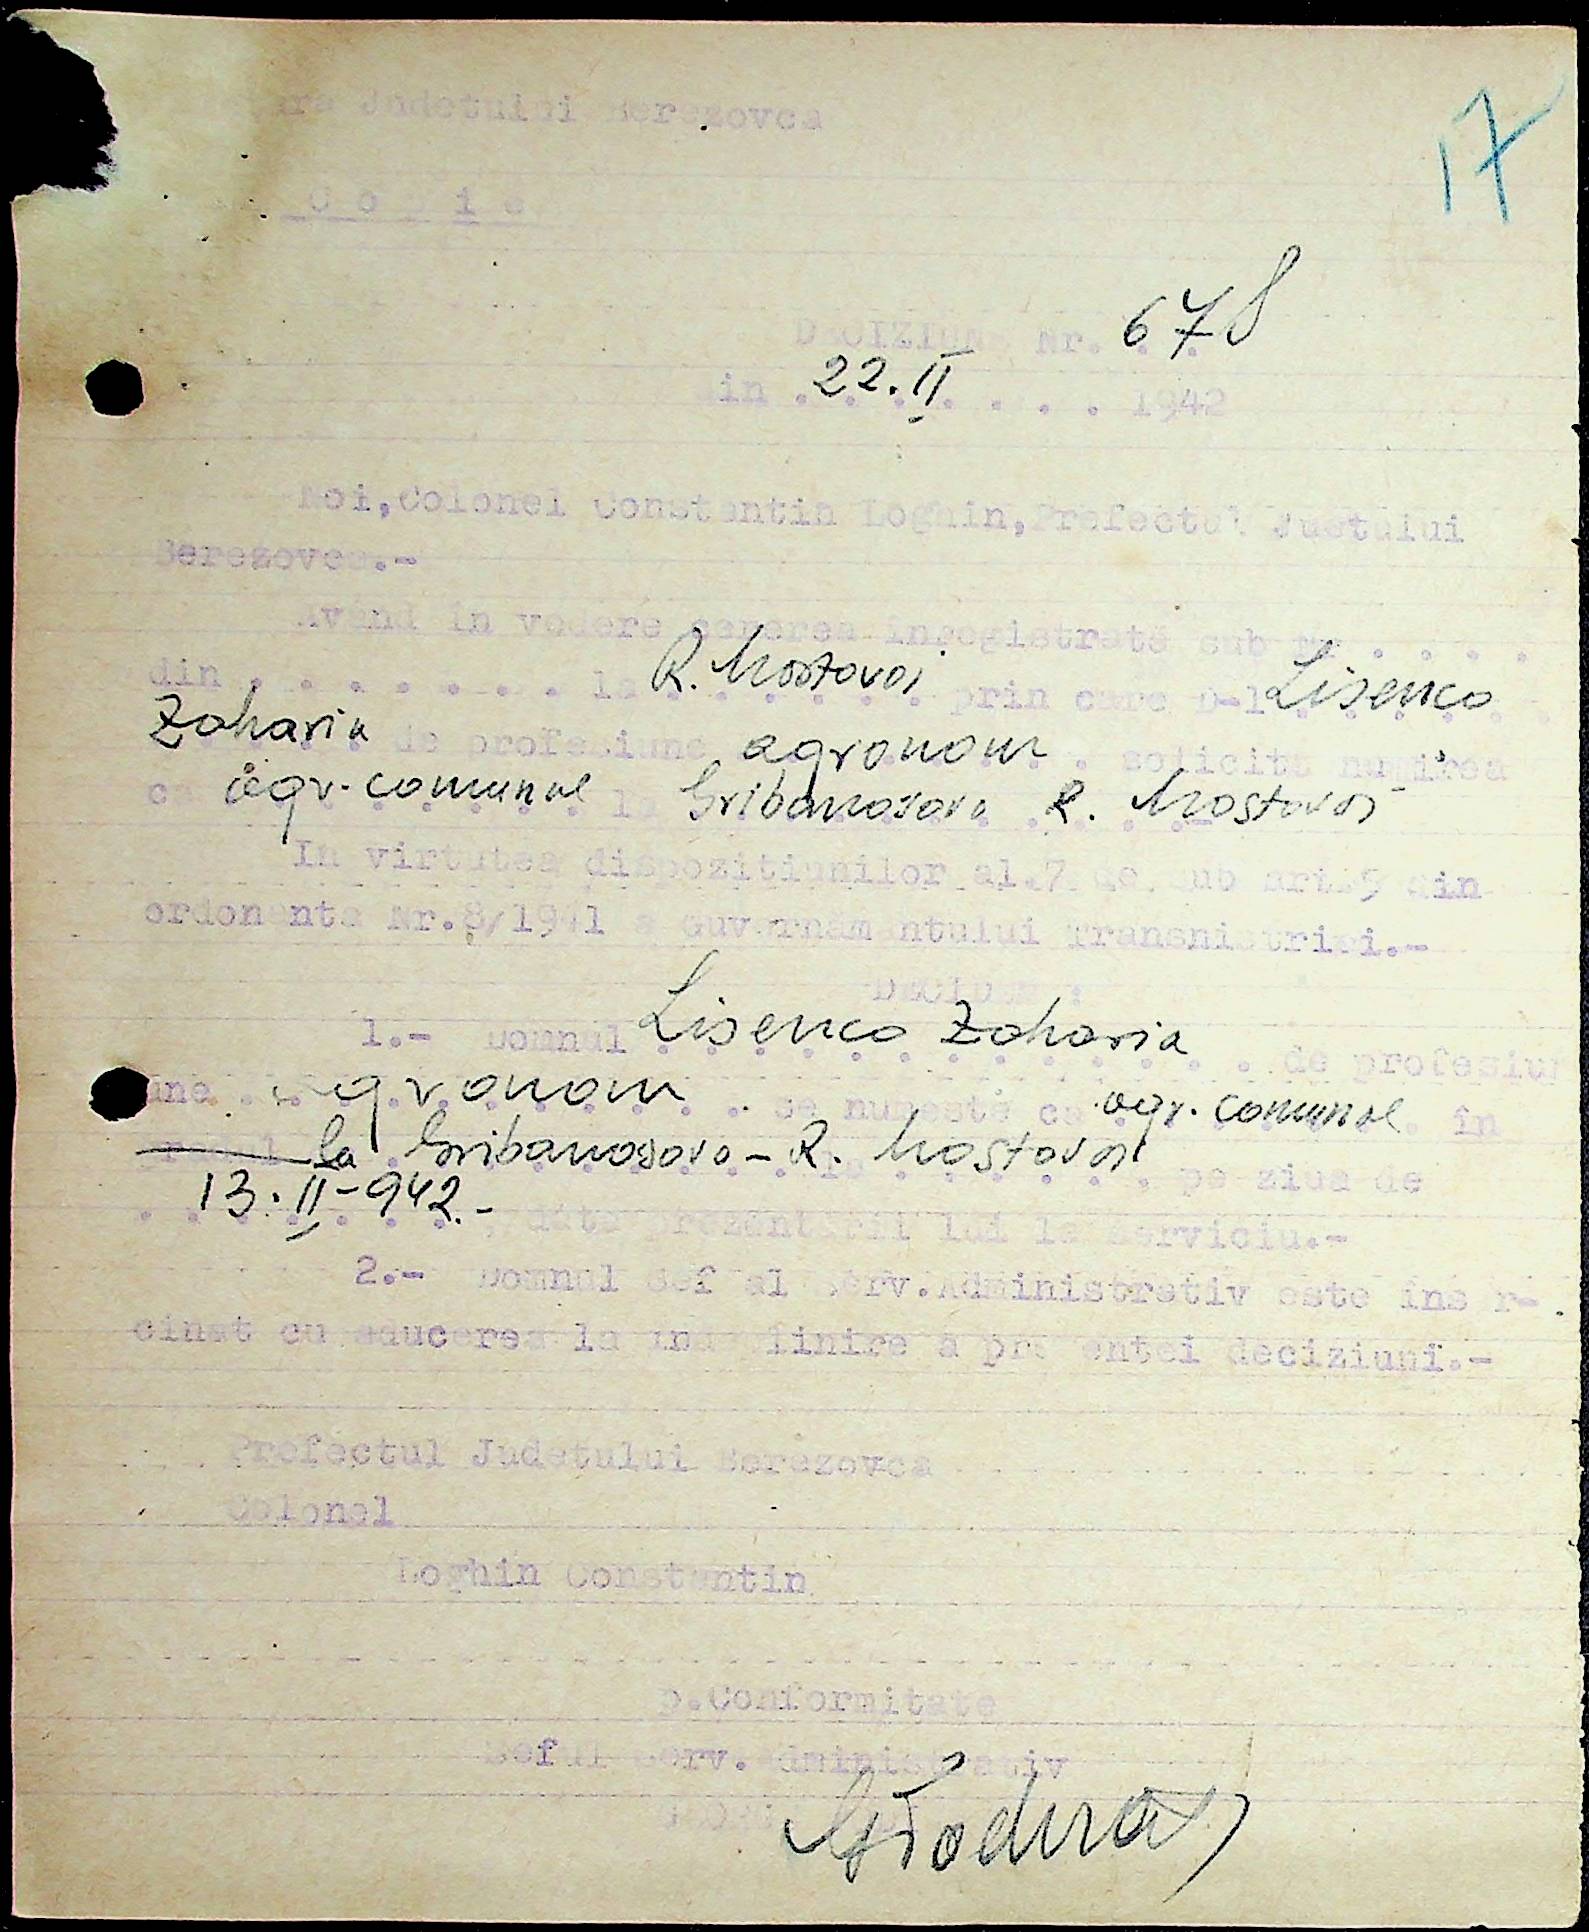 17
Judetului Berezovca
Copie
DECIZIUNE Nr. 678
din 22.II 1942
Noi, Colonel Constantin Loghin, Prefectul Judetului
Berezovca.-
Avand in vedere cererea inregistrată sub Nr. . . . .
din . . . . . . . la R. Mostovoi prin care D-l Lisenco
Zaharia de profesiune agronom solicita numirea
ca agr. comunal la R. Mostovoi
In virtutea dispozitiunilor al.7 de sub art.5 din
ordonanta Nr.8/1941 a Guvernamantului Transnistriei.-
DECIDEM :
1.- Domnul Lisenco Zaharia de profesiu
une agronom se numeste ca agr. comunal în
la R. Mostovoi pe ziua de
13.II-942.- , data prezentarii lui la serviciu.-
2.- Domnul Sef al Serv.Administrativ este insar-
cinat cu aducerea la indeplinire a prezentei deciziuni.-
Prefectul Judetului Berezovca
Colonel
Loghin Constantin
p.Conformitate
Seful Serv.Administrativ